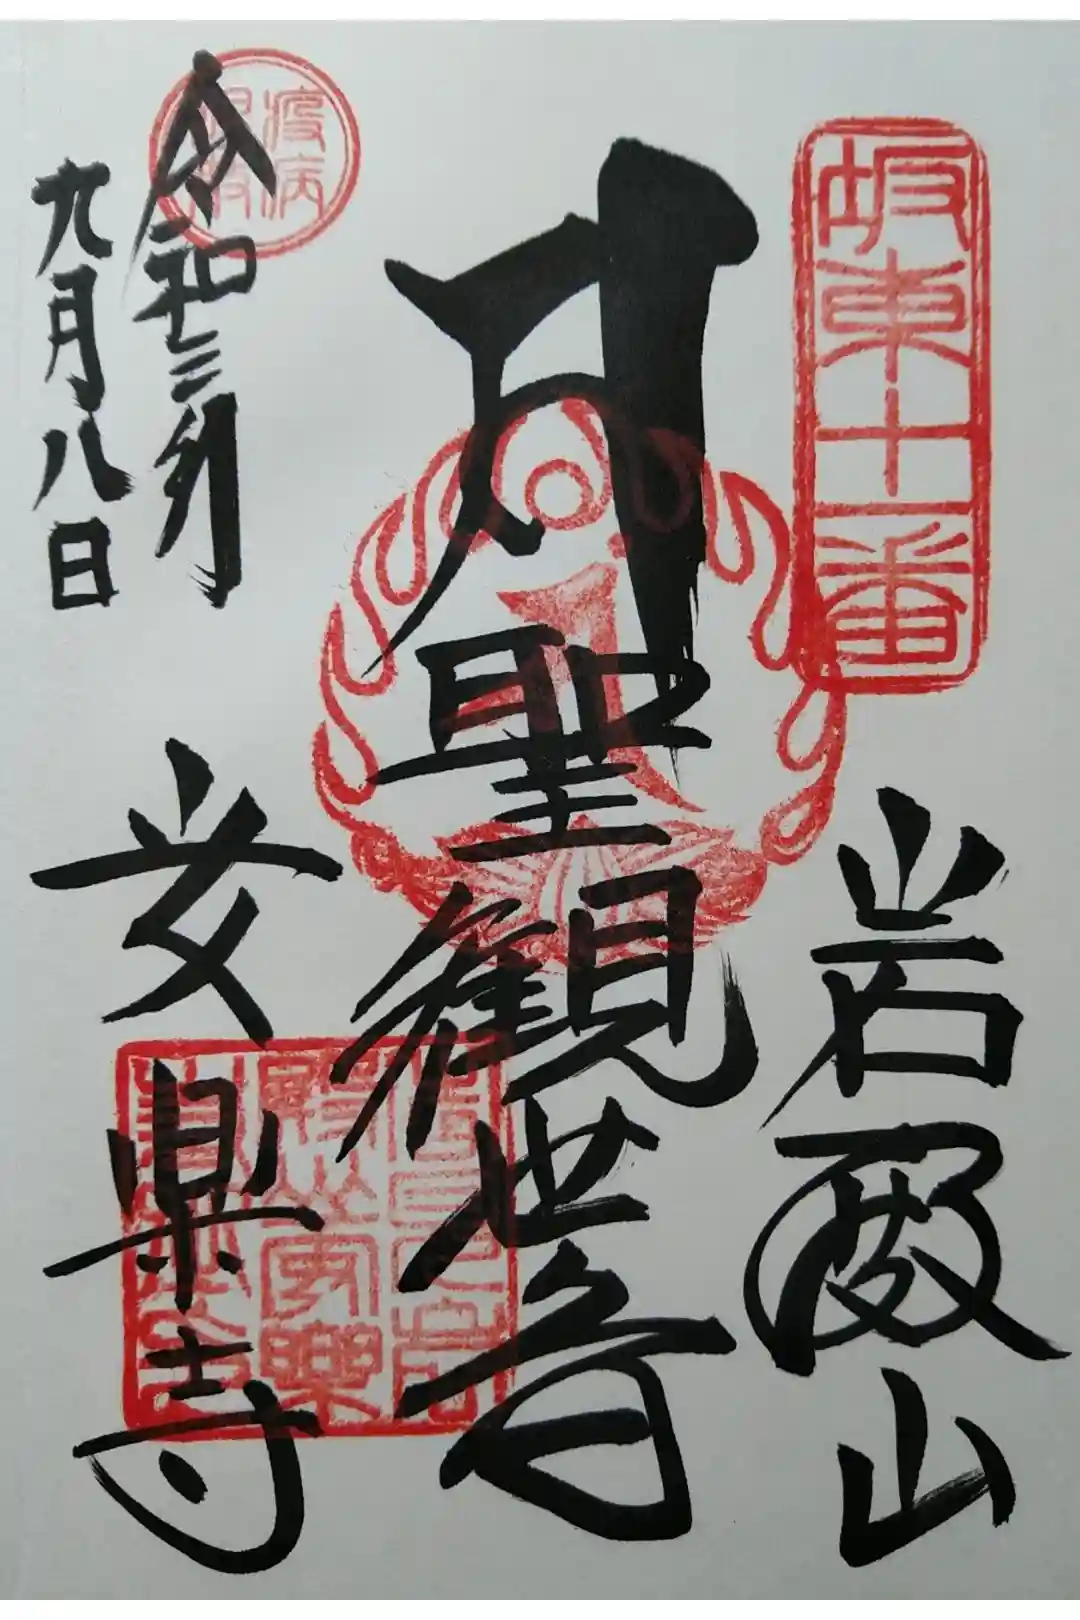 坂東十一番
岩殿山
聖観世音
疫病退散
令和三年
九月八日
安楽寺